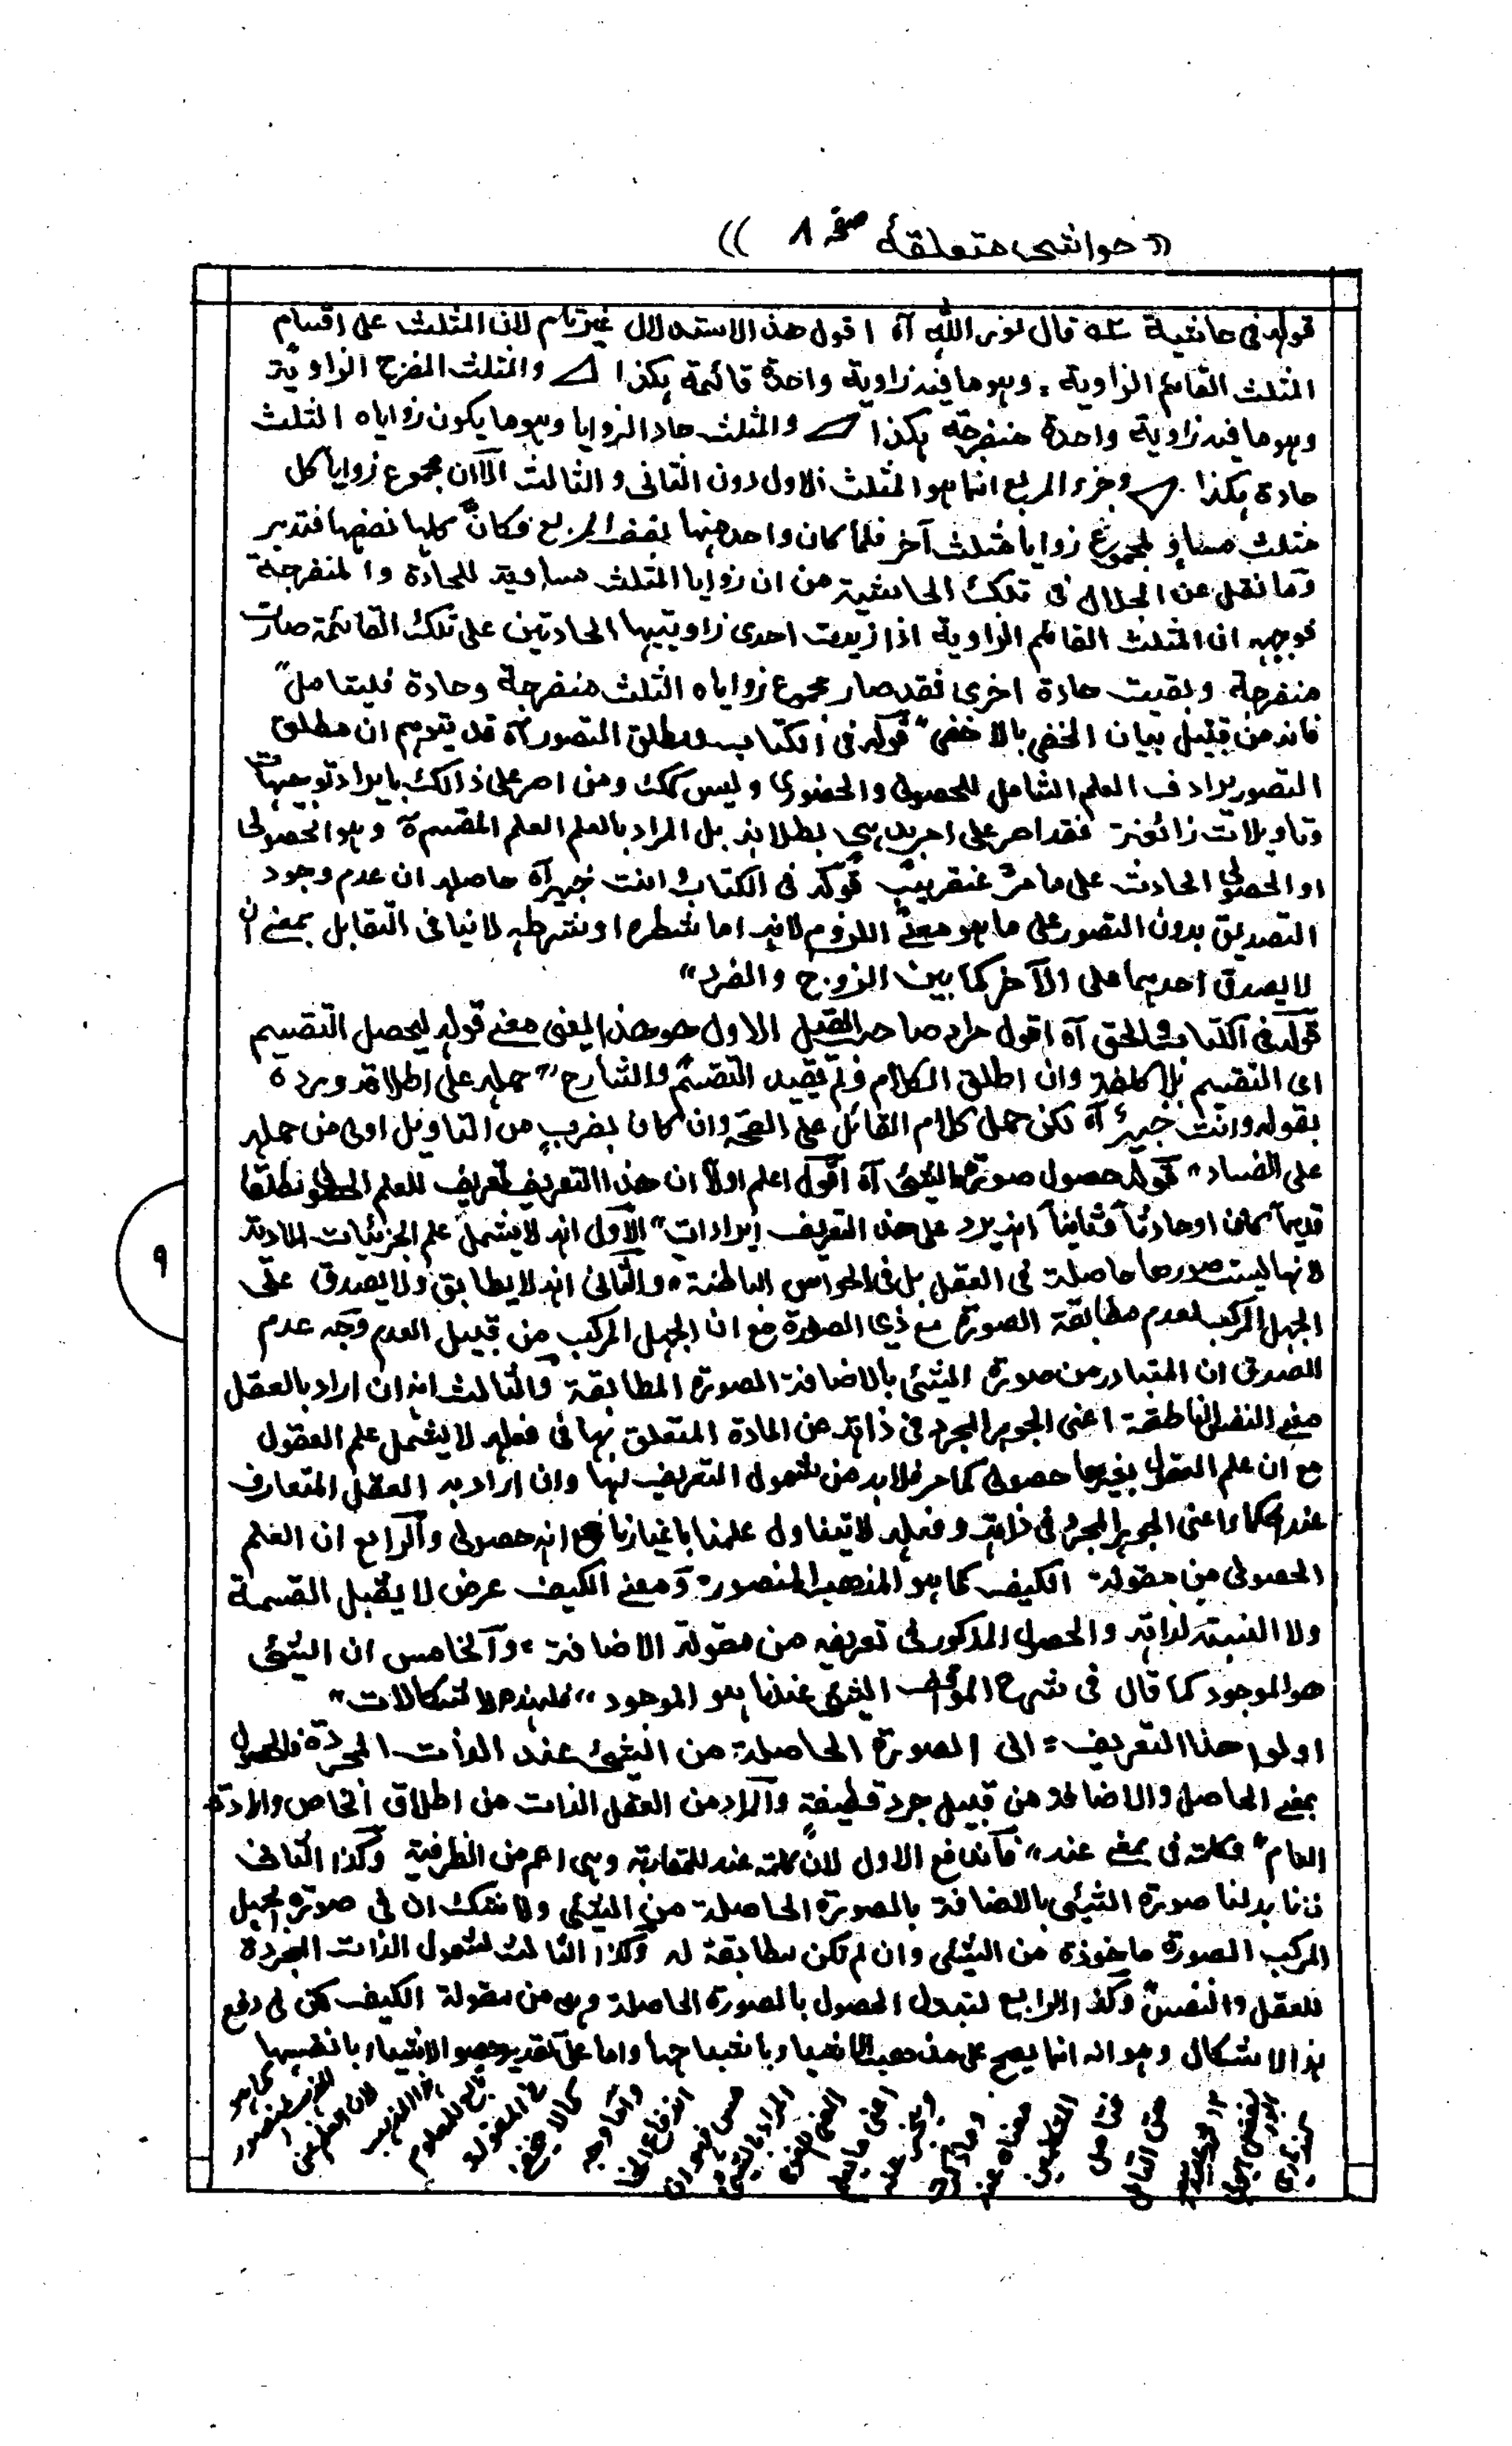 «حواشی متعلقۀ صفحہ ۸»
قولہ فی حاشیۃ قال نور اللہ آہ اقول ھذا الاستدلال غیر تام لان المثلث علی اقسام
المثلث القائم الزاویۃ وہو ما فیہ زاویۃ واحدۃ قائمۃ ہکذا والمثلث المنفرج الزاویۃ
وہو ما فیہ زاویۃ واحدۃ منفرجۃ ہکذا والمثلث حاد الزوایا وہو ما یکون زوایاہ الثلث
حادۃ ہکذا وجزء المربع انما ہو المثلث الاول دون الثانی والثالث الا ان مجموع زوایا کل
مثلث مساو لمجموع زوایا مثلث آخر فلما کان واحد منہا نصف المربع فکان کلہا نصفہا فتدبر
وما نقل عن الجلال فی تلک الحاشیۃ من ان زوایا المثلث مساویۃ للحادۃ والمنفرجۃ
فوجہہ ان المثلث القائم الزاویۃ اذا زیدت احدی زاویتیہا الحادتین علی تلک القائمۃ صارت
منفرجۃ وبقیت حادۃ اخری فقد صار مجموع زوایاہ الثلث منفرجۃ وحادۃ فلیتامل"
فانہ من قبیل بیان الخفی بالاخفی" قولہ فی الکتاب ومطلق التصور آہ قد یتوہم ان مطلق
التصور یرادف العلم الشامل للحصولی والحضوری ولیس کک ومن اصر علی ذالک بایراد توجیہات
وتاویلات زائغۃ فقد اصر علی امر بدیہی بطلانہ بل المراد بالعلم العلم المقسم آہ وہو الحصولی
او الحصولی الحادث علی ما مر عنقریب قولہ فی الکتاب وانت خبیر آہ حاصلہ ان عدم وجود
التصدیق بدون التصور علی ما ہو معنے اللزوم لانہ اما شطرہ او شرطہ لا ینافی التقابل بمعنے ان
لا یصدق احدہما علی الآخر کما بین الزوج والفرد"
قولہ فی الکتاب والحق آہ اقول مراد صاحب القیل الاول ھو ھذا المعنی معنے قولہ لیحصل التقسیم
ای التقسیم بلا کلفۃ وان اطلق الکلام ولم یقید التقسیم والشارح" حملہ علی اطلاقہ وردہ
بقولہ وانت خبیر آہ لکن حمل کلام القائل علی الصحۃ وان کان بضرب من التاویل اولی من حملہ
علی الفساد" قولہ حصول صورۃ الشیٔ آہ اقول اعلم اولا ان ھذا التعریف تعریف للعلم الحصولی مطلقا
قدیما کان او حادثا وثانیا انہ یرد علی ھذا التعریف ایرادات" الاول انہ لا یشمل علم الجزئیات المادیۃ
لانہا لیست صورھا حاصلۃ فی العقل بل فی الحواس الباطنۃ والثانی انہ لا یطابق ولا یصدق علی
الجہل المرکب لعدم مطابقۃ الصورۃ مع ذی الصورۃ مع ان الجہل المرکب من قبیل العلم وجہ عدم
الصدق ان المتبادر من صورۃ الشیٔ بالاضافۃ الصورۃ المطابقۃ والثالث انہ ان اراد بالعقل
معنے النفس الناطقۃ اعنی الجوہر المجرد فی ذاتہ عن المادۃ المتعلق بہا فی فعلہ لا یشمل علم العقول
مع ان علم العقول بغیرہا حصولی کما مر فلا بد من شمول التعریف لہا وان اراد بہ العقل المتعارف
عند الحکماء اعنی الجوہر المجرد فی ذاتہ وفعلہ لا یتناول علمنا باغیارنا مع انہ حصولی والرابع ان العلم
الحصولی من مقولۃ الکیف کما ہو المذھب المنصور ومعنے الکیف عرض لا یقبل القسمۃ
ولا النسبۃ لذاتہ والحصول المذکور فی تعریفہ من مقولۃ الاضافۃ والخامس ان الشیٔ
ھو الموجود کما قال فی شرح المواقف الشیٔ عندنا ہو الموجود" فلہذہ الاشکالات"
اولوا ھذا التعریف الی الصورۃ الحاصلۃ من الشیٔ عند الذات المجردۃ فالحصول
بمعنے الحاصل والاضافۃ من قبیل جرد قطیفۃ والمراد من العقل الذات من اطلاق الخاص وارادۃ
العام" وکلمۃ فی بمعنے عند" فاندفع الاول لان کلمۃ عند للمقارنۃ وہی اعم من الظرفیۃ وکذا الثانی
فانا بدلنا صورۃ الشیٔ بالاضافۃ بالصورۃ الحاصلۃ من الشیٔ ولا شک ان فی صورۃ الجہل
المرکب الصورۃ ماخوذۃ من الشیٔ وان لم تکن مطابقۃ لہ وکذا الثالث لشمول الذات المجردۃ
للعقل والنفس وکذا الرابع لتبدل الحصول بالصورۃ الحاصلۃ وہی من مقولۃ الکیف لکن فی دفع
ہذا الاشکال وہو انہ انما یصح علی مذھب الاشیاء باشباحہا واما علی تقدیر حصول الاشیاء بانفسہا
۹